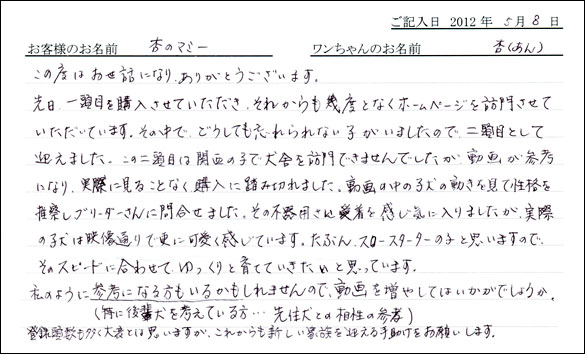 ご記入日 2012 年 5 月 8 日
お客様のお名前 杏のマミー ワンちゃんのお名前 杏(あん)
この度はお世話になり、ありがとうございます。
先日、一頭目を購入させていただき、それからも幾度となくホームページを訪問させて
いただいています。その中で、どうしても忘れられない子がいましたので、二頭目として
迎えました。この二頭目は関西の子で犬舎を訪問できませんでしたが、動画が参考
になり、実際に見ることなく購入に踏み切れました。動画の中の子犬の動きを見て性格を
推察しブリーダーさんに問合せました。その不器用さに愛着を感じ気に入りましたが、実際
の子犬は映像通りで更に可愛く感じています。たぶん、スロースターターの子と思いますので、
そのスピードに合わせて、ゆっくりと育てていきたいと思っています。
私のように参考になる方もいるかもしれませんので、動画を増やしてはいかがでしょうか。
(特に後輩犬を考えている方… 先住犬との相性の参考)
登録頭数も多く大変とは思いますが、これからも新しい家族を迎える手助けをお願いします。